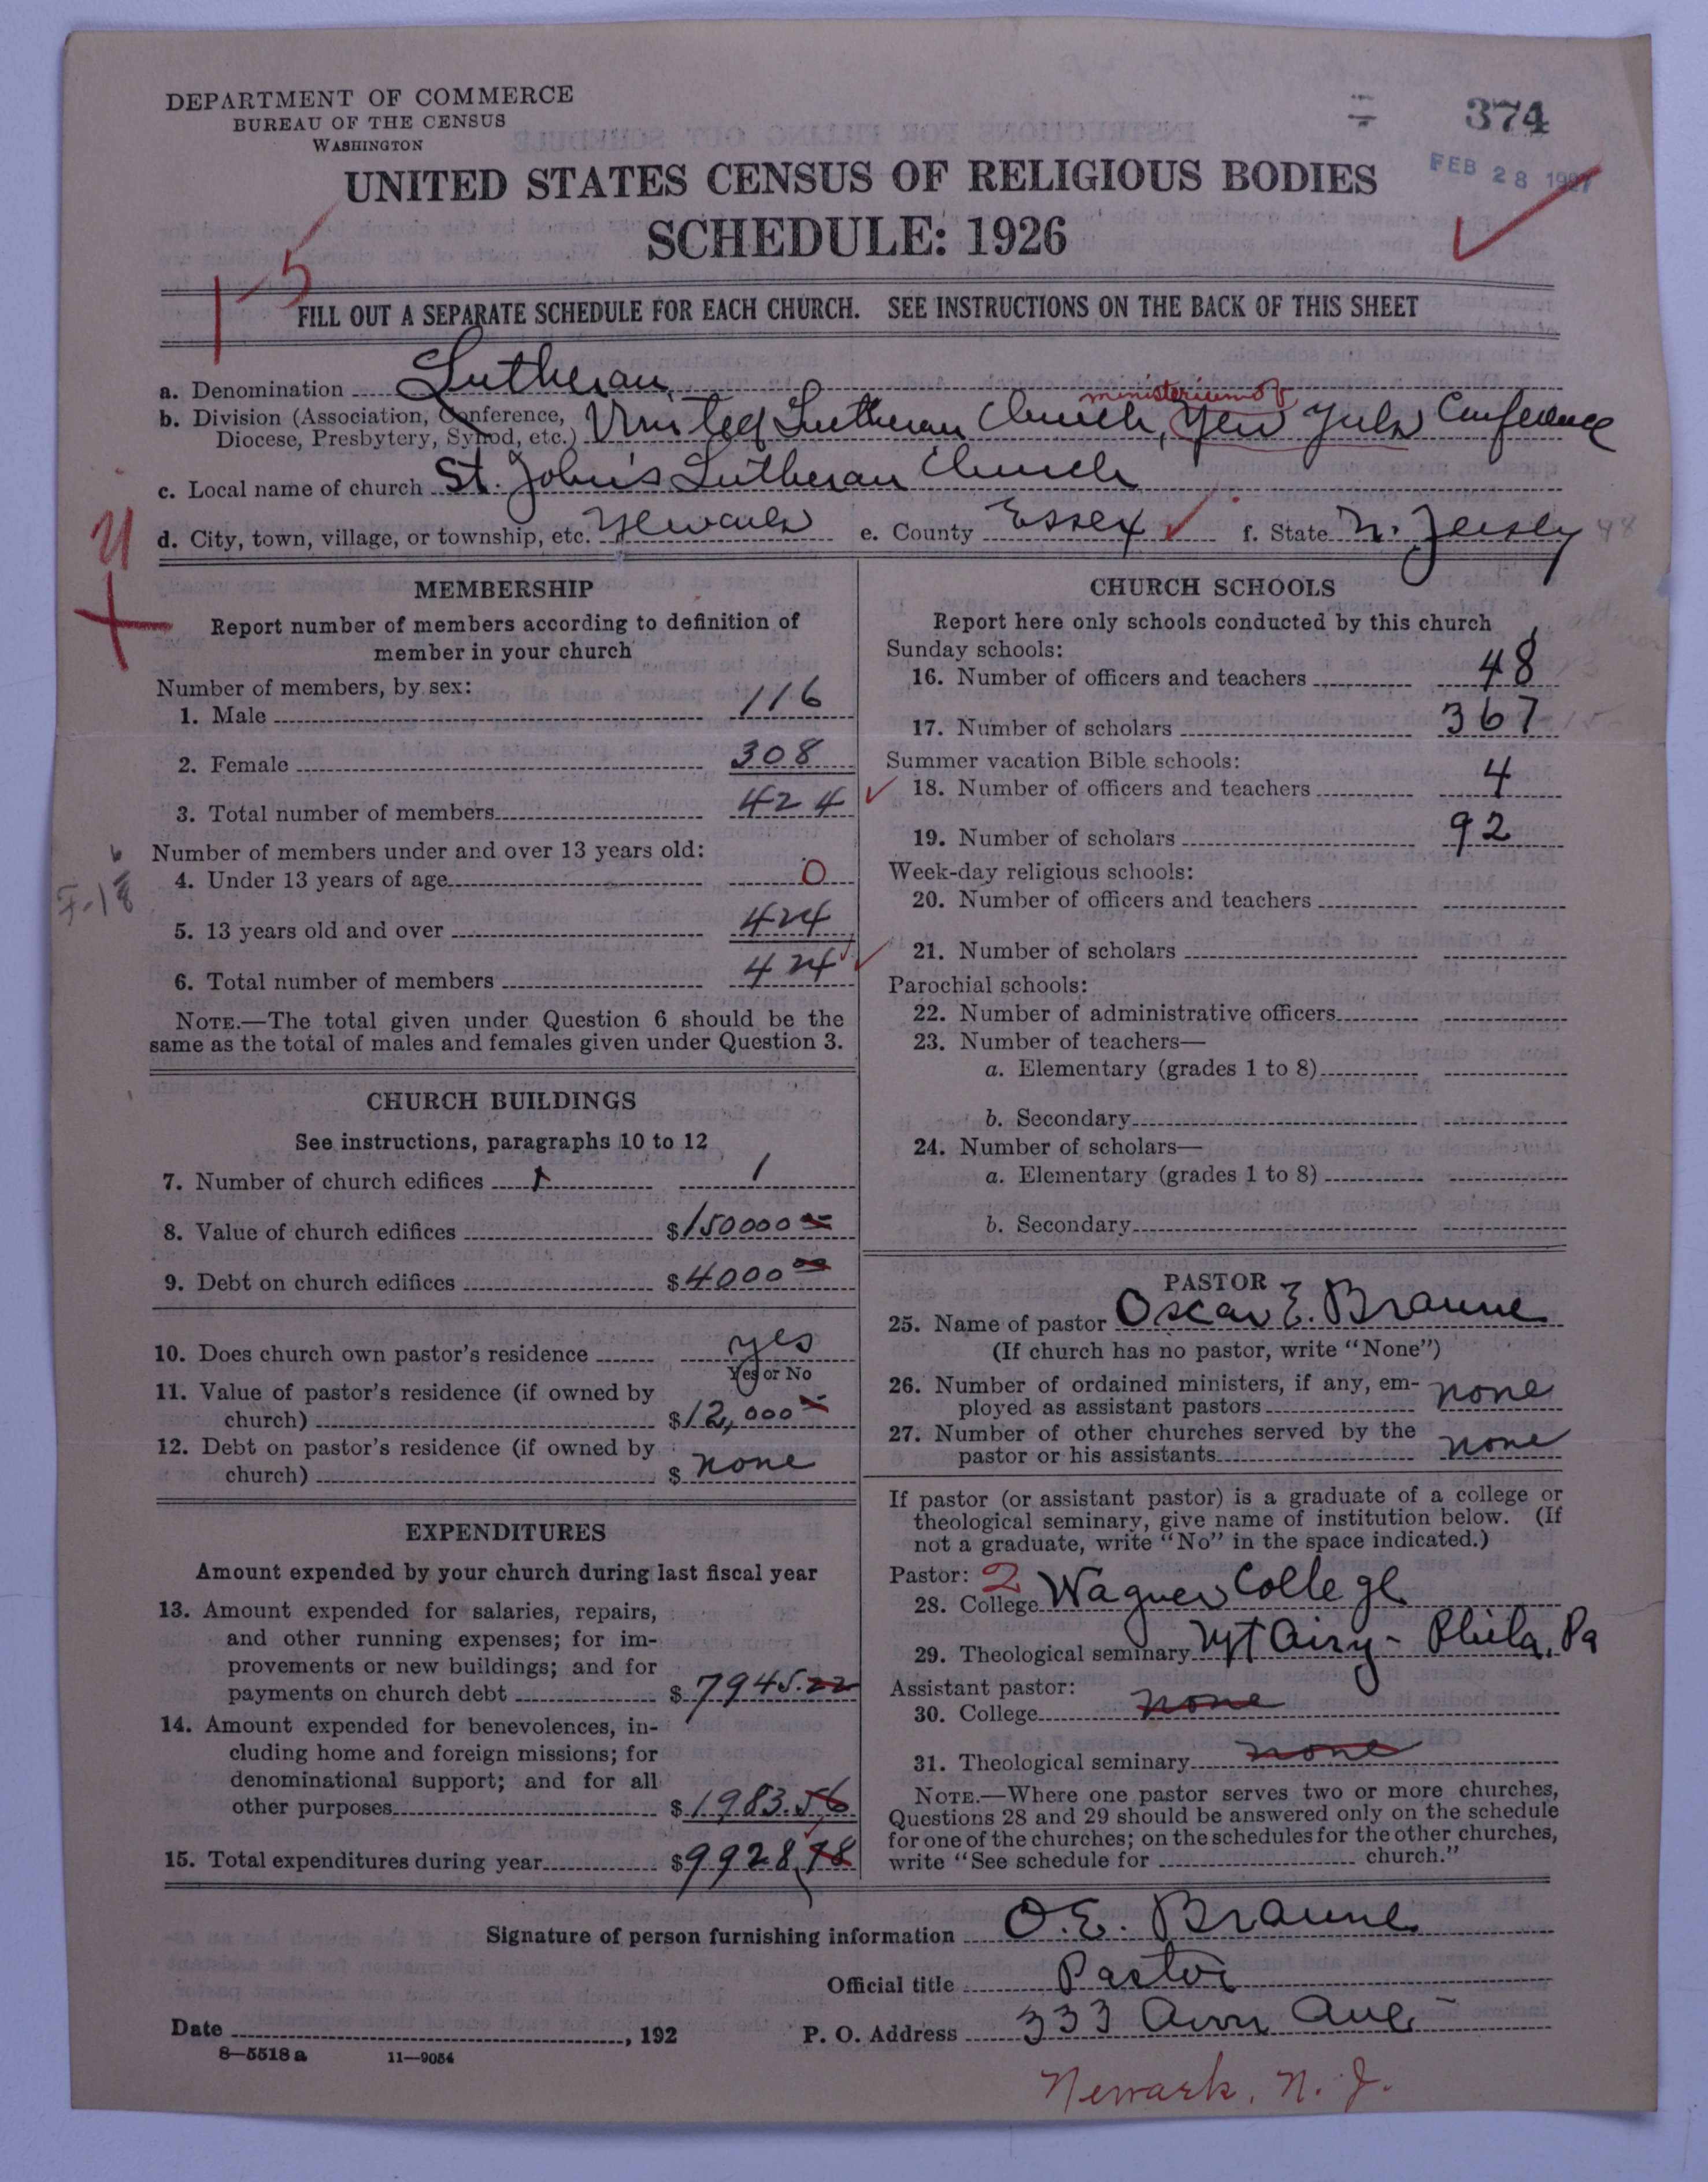 DEPARTMENT OF COMMERCE
BUREAU OF THE CENSUS
WASHINGTON
374
FEB 28 1927
UNITED STATES CENSUS OF RELIGIOUS BODIES
SCHEDULE: 1926
15
FILL OUT A SEPARATE SCHEDULE FOR EACH CHURCH. SEE INSTRUCTIONS ON THE BACK OF THIS SHEET
a. Denomination Lutheran
ministerium of
b. Division (Association, Conference, Diocese, Presbytery, Synod, etc.) United Lutheran Church, New York Conference
c. Local name of church St. John's Lutheran Church
d. City, town, village, or township, etc. Newark e. County Essex f. State N. Jersey 48
MEMBERSHIP
Report number of members according to definition of
member in your church
Number of members, by sex:
1. Male 116
2. Female 308
3. Total number of members 424
Number of members under and over 13 years old:
4. Under 13 years of age 0
5. 13 years old and over 424
6. Total number of members 424
NOTE.—The total given under Question 6 should be the
same as the total of males and females given under Question 3.
CHURCH BUILDINGS
See instructions, paragraphs 10 to 12
7. Number of church edifices 1 1
8. Value of church edifices $150000 00
9. Debt on church edifices $4000 00
10. Does church own pastor's residence yes
Yes or No
11. Value of pastor's residence (if owned by
church) $12,000
12. Debt on pastor's residence (if owned by
church) $ none
EXPENDITURES
Amount expended by your church during last fiscal year
13. Amount expended for salaries, repairs,
and other running expenses; for im-
provements or new buildings; and for
payments on church debt $7945.22
14. Amount expended for benevolences, in-
cluding home and foreign missions; for
denominational support; and for all
other purposes $1983.56
15. Total expenditures during year $9928.78
CHURCH SCHOOLS
Report here only schools conducted by this church
Sunday schools:
16. Number of officers and teachers 48
17. Number of scholars 367
Summer vacation Bible schools:
18. Number of officers and teachers 4
19. Number of scholars 92
Week-day religious schools:
20. Number of officers and teachers
21. Number of scholars
Parochial schools:
22. Number of administrative officers
23. Number of teachers—
a. Elementary (grades 1 to 8)
b. Secondary
24. Number of scholars—
a. Elementary (grades 1 to 8)
b. Secondary
PASTOR
25. Name of pastor Oscar E. Braune
(If church has no pastor, write "None")
26. Number of ordained ministers, if any, em-
ployed as assistant pastors none
27. Number of other churches served by the
pastor or his assistants none
If pastor (or assistant pastor) is a graduate of a college or
theological seminary, give name of institution below. (If
not a graduate, write "No" in the space indicated.)
Pastor: 2
28. College Wagner College
29. Theological seminary Mt Airy - Phila. Pa
Assistant pastor:
30. College none
31. Theological seminary none
NOTE.—Where one pastor serves two or more churches,
Questions 28 and 29 should be answered only on the schedule
for one of the churches; on the schedules for the other churches,
write "See schedule for church."
Signature of person furnishing information O. E. Braune
Official title Pastor
Date , 192 P. O. Address 333 Ann Ave
8—5518a 11—9054
Newark, N. J.